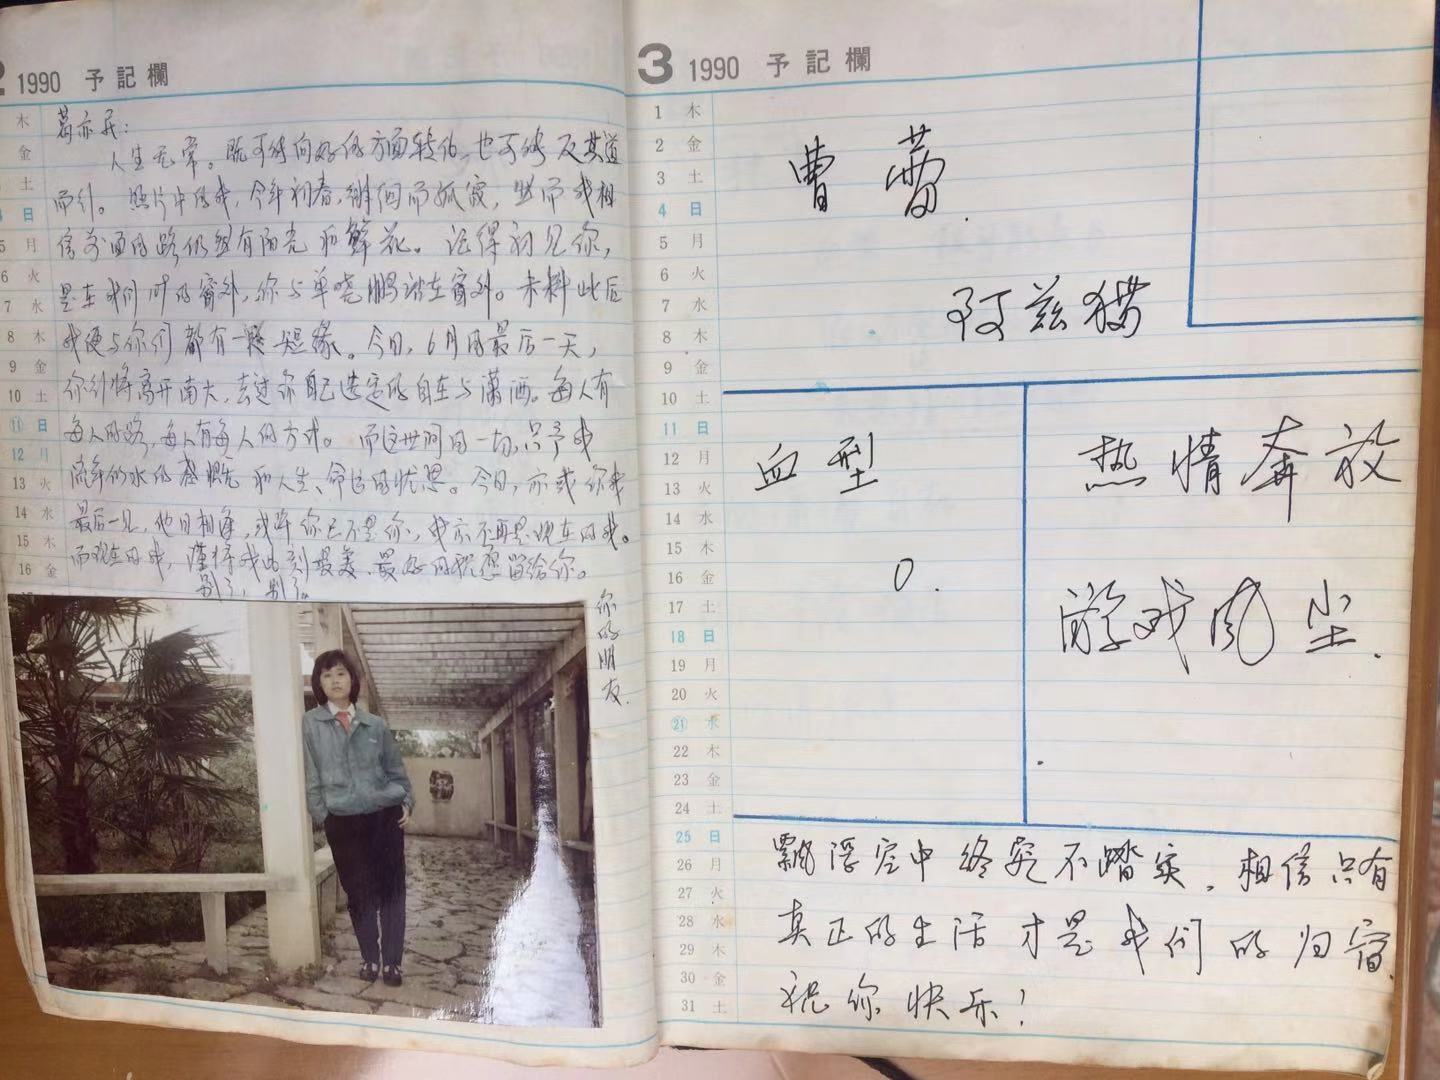 2 1990 予記欄
木
金
土
日
5 月
6 火
7 水
8 木
9 金
10 土
11 日
12 月
13 火
14 水
15 木
16 金
葛亦民：
人生无常。既可能向好的方面转化，也可能反其道
而行。照片中的我，今年初春，徘徊而孤寂，然而我相
信前面的路仍然有阳光和鲜花。记得初见你，
是在我们的窗外，你与单晓鹏站在窗外。未料此后
我便与你们都有一段短缘。今日，6月的最后一天，
你们将离开南大，去过你自己选定的自在与潇洒。每人有
每人的路，每人有每人的方式。而这世间的一切，只予我
流年似水的感慨和人生、命运的忧思。今日，亦或你我
最后一见，他日相逢，或许你已不是你，我亦不再是现在的我。
而现在的我，谨将我此刻最美、最好的祝愿留给你。
别了，别了。
你的朋友
3 1990 予記欄
1 木
2 金
3 土
4 日
5 月
6 火
7 水
8 木
9 金
10 土
11 日
12 月
13 火
14 水
15 木
16 金
17 土
18 日
19 月
20 火
21 水
22 木
23 金
24 土
25 日
26 月
27 火
28 水
29 木
30 金
31 土
曹蕾.
阿兹猫
血型
O.
热情奔放
游戏风尘.
飘浮空中终究不踏实，相信只有
真正的生活才是我们的归宿.
祝你快乐！